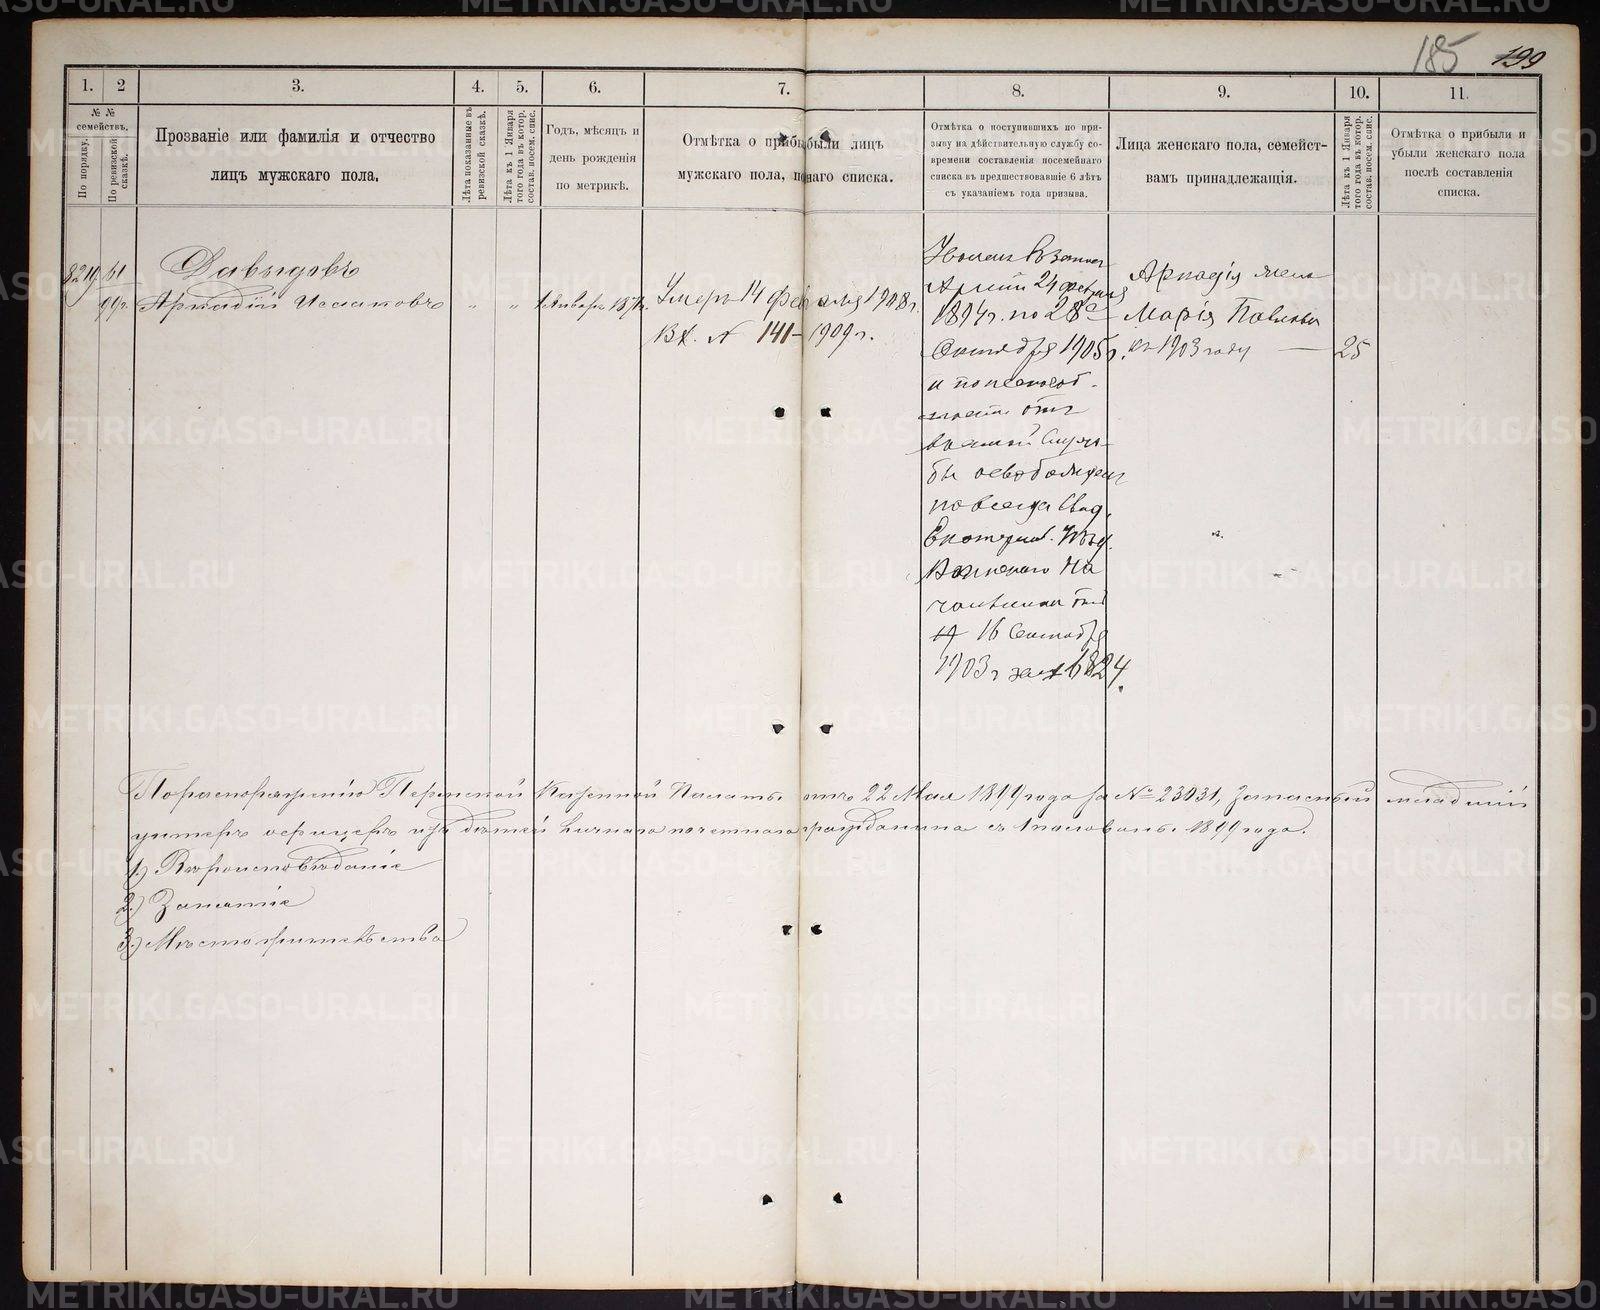 185 199
1. 2 3. 4. 5. 6. 7. 8. 9. 10. 11.
№ №
семействъ.
По порядку.
По ревизской сказкѣ.
Прозваніе или фамилія и отчество
лицъ мужскаго пола.
Лѣта показанные въ
ревизской сказкѣ.
Лѣта къ 1 Января
того года въ котор.
состав. посем. спис.
Годъ, мѣсяцъ и
день рожденія
по метрикѣ.
Отмѣтка о прибы были лицъ
мужскаго пола, по наго списка.
Отмѣтка о поступившихъ по при-
зыву на дѣйствительную службу со-
времени составленія посемейнаго
списка въ предшествовавшіе 6 лѣтъ
съ указаніемъ года призыва.
Лица женскаго пола, семейст-
вамъ принадлежащія.
Лѣта къ 1 Января
того года въ котор.
состав. посем. спис.
Отмѣтка о прибыли и
убыли женскаго пола
послѣ составленія
списка.
Давыдовъ
Аркадій Исааковъ " "
Умеръ 14 февраля 1908 г.
Вх. № 141-1909 г.
Арміи 24 февраля
1894 г. по 28 е
Октября 1905 г.
и по
отъ
военной Служ-
бы освобожденъ
навсегда Свид.
Екатеринб. Уѣзд.
Воинскаго На
чальника отъ
16 Сентября
1903 г за № 6824.
Аркадія жена
Марія Павлова
къ 1903 году — 25
По распоряженію Пермской Казенной Палаты отъ 22 Мая 1899 года за № 23031, Запасный младшій
унтеръ офицеръ изъ дѣтей личнаго почетнаго гражданина съ 1 половины 1899 года.
1.) Вѣроисповѣданіе
2.) Занятіе
3.) Мѣсто жительства
METRIKI.GASO-URAL.RU